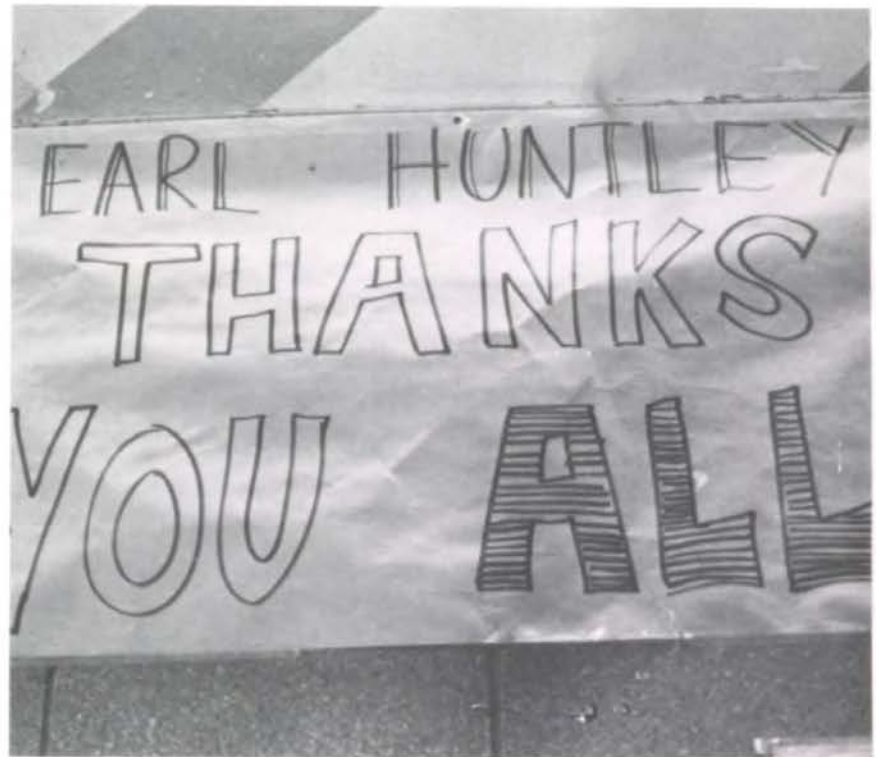 EARL HUNTLEY
THANKS
YOU ALL